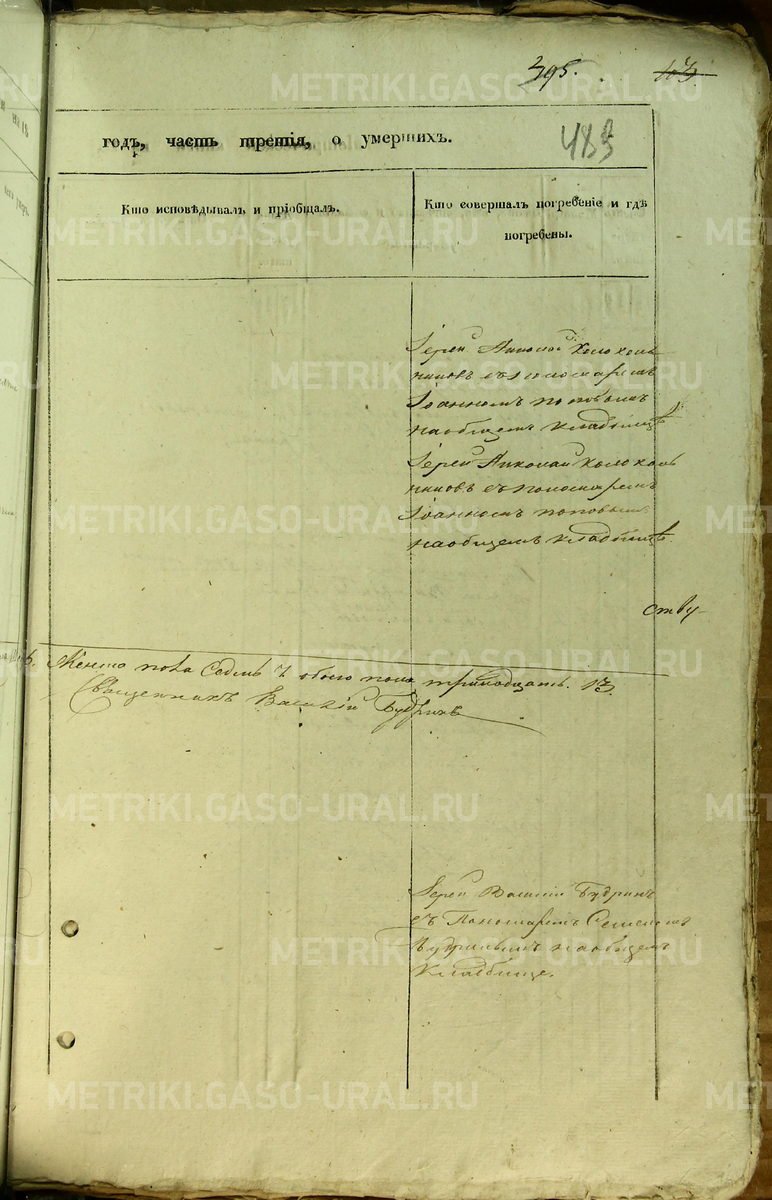 395.
103
483
годъ, часть третія, о умершихъ.
Кто исповѣдывалъ и пріобщалъ.
Кто совершалъ погребеніе и гдѣ
погребены.
Іерей Николай Колоколь
никовъ съ пономаремъ
Іоанномъ Поповымъ
на общемъ кладбищѣ
Іерей Николай Колоколь
никовъ съ пономаремъ
Іоанномъ Поповымъ
на общемъ кладбищѣ.
ству
Женска пола Седмь 7 обоего пола тринадцать. 13.
Священникъ Василій Будринъ
Іерей Василій Будринъ
съ Пономаремъ Семеномъ
Будринымъ на общемъ
Кладбище.
METRIKI.GASO-URAL.RU